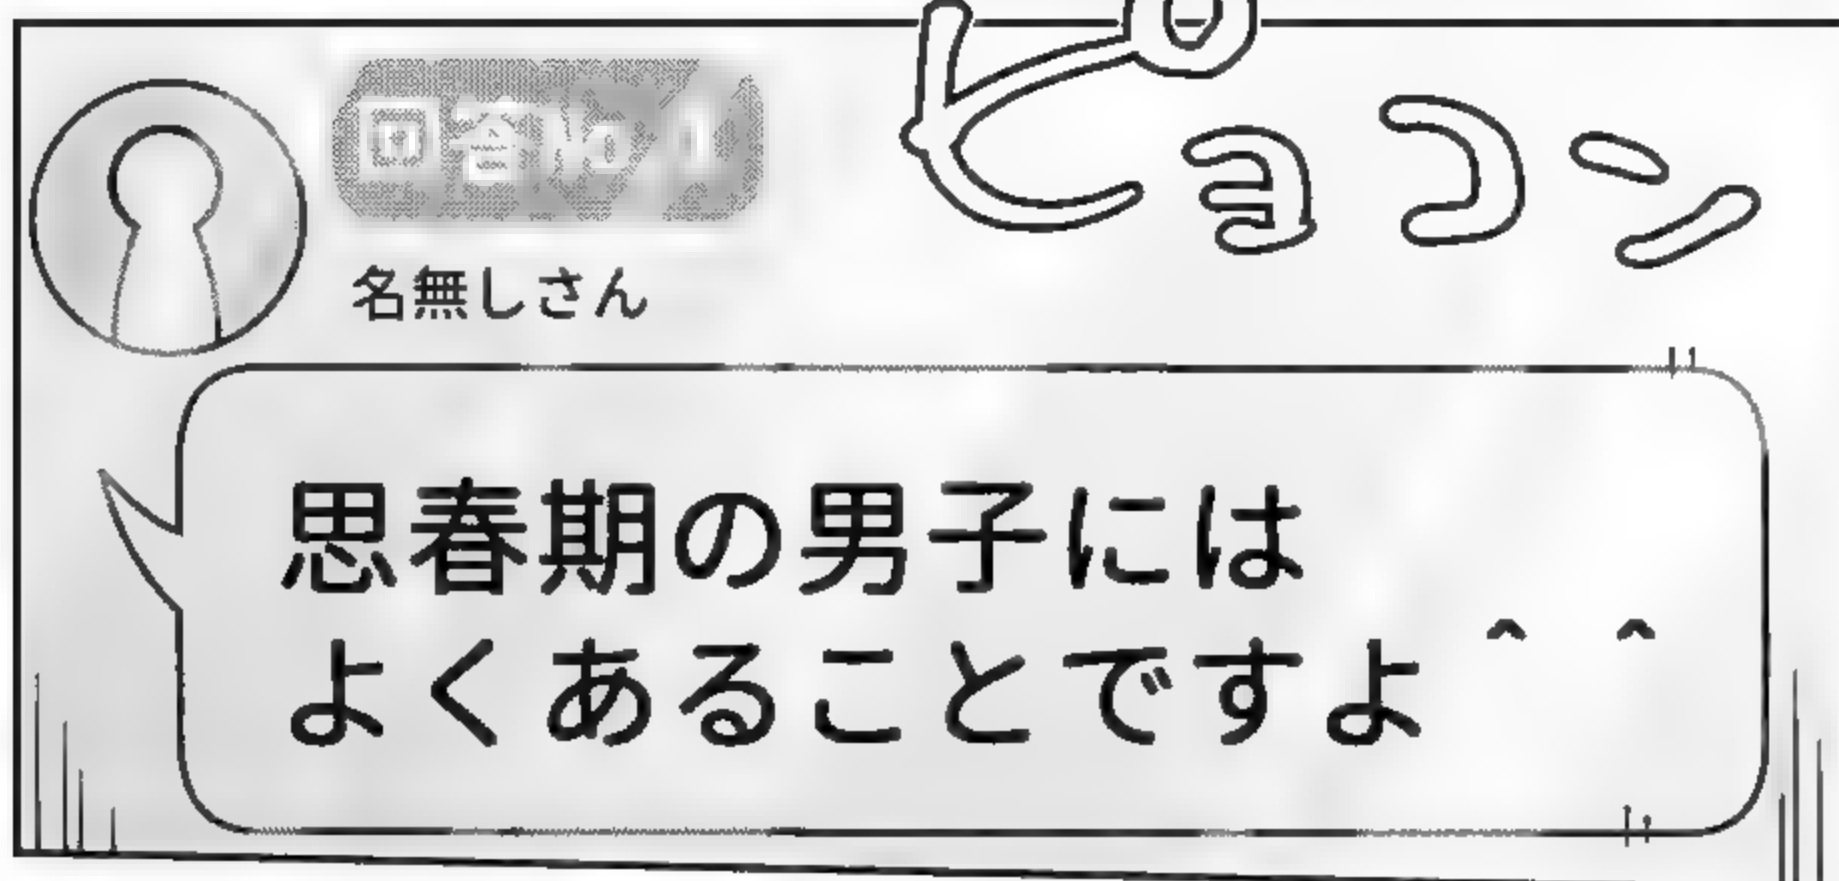 ピョコン
名無しさん
思春期の男子には
よくあることですよ＾＾